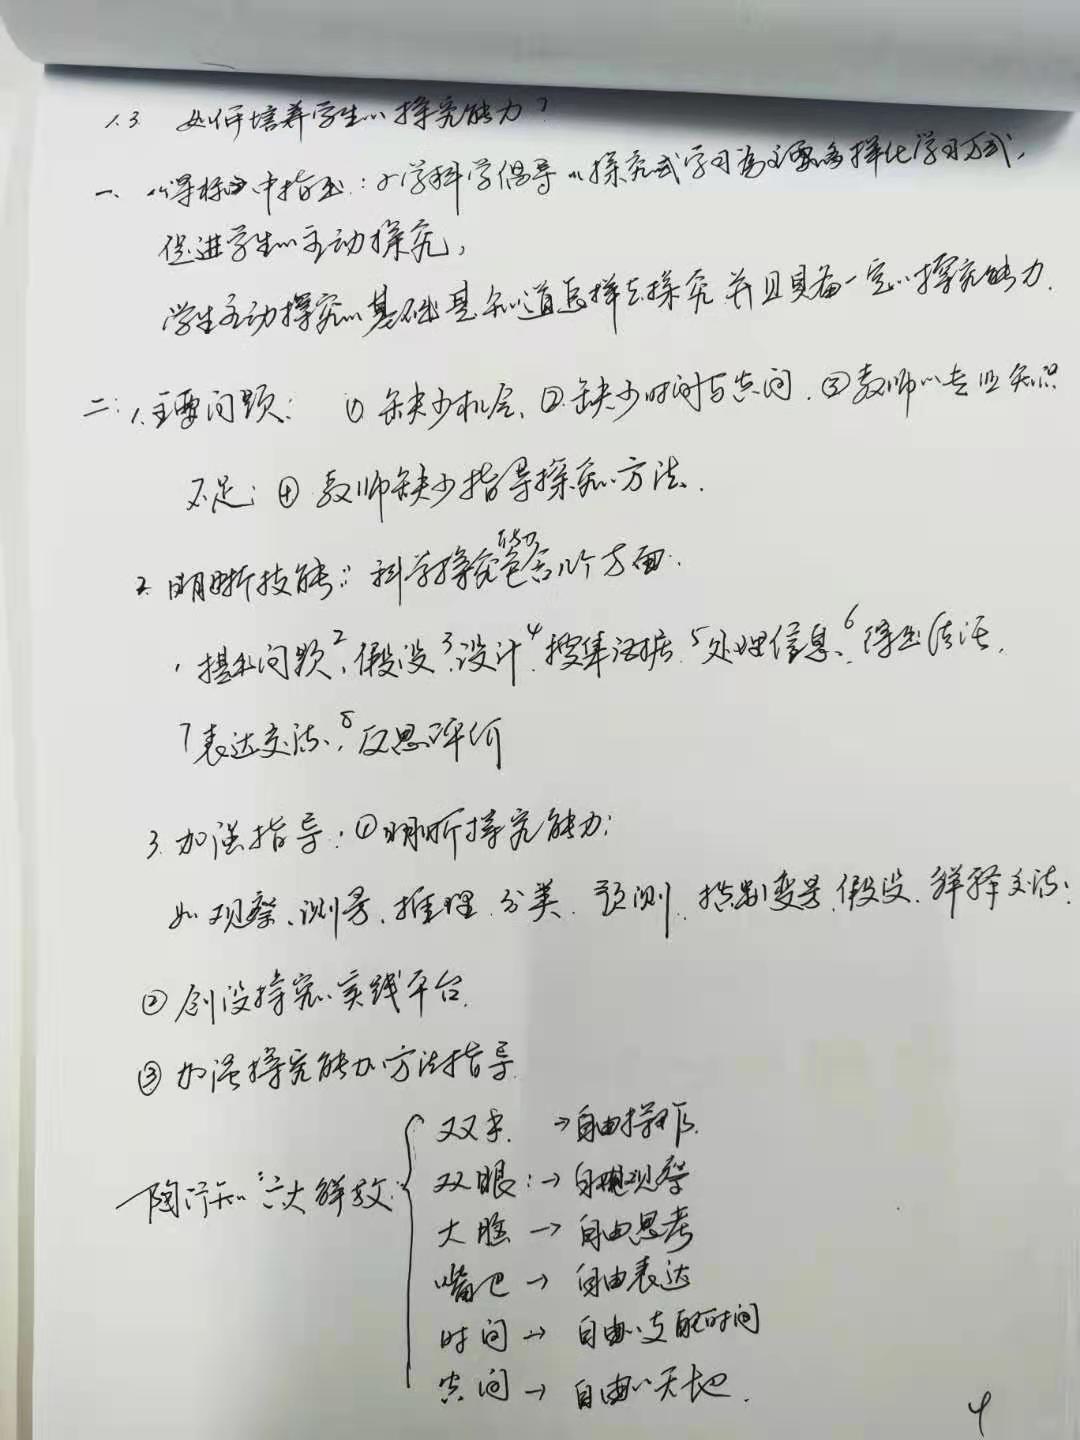 1.3 如何培养学生的探究能力?
一、课标中指出:小学科学倡导以探究式学习为主要的多样化学习方式,
促进学生的主动探究,
学生主动探究的基础是知道怎样去探究并且具备一定的探究能力.
二:1.主要问题: ①缺少机会、②缺少时间与空间.③教师的专业知识
不足;④教师缺少指导探究的方法.
2.明晰技能:科学探究包含几个方面.
1提出问题2、假设3、设计4搜集证据、5处理信息、6得出结论、
7表达交流、8反思评价
3.加强指导:①明晰探究能力:
如观察、测量、推理.分类.预测、控制变量、假设、解释交流;
②创设探究的实践平台.
③加强探究能力方法指导.
陶行知:六大解放:
双手.→自由操作.
双眼:→自由观察
大脑→自由思考
嘴巴→自由表达
时间→自由的支配时间
空间→自由的天地.
4